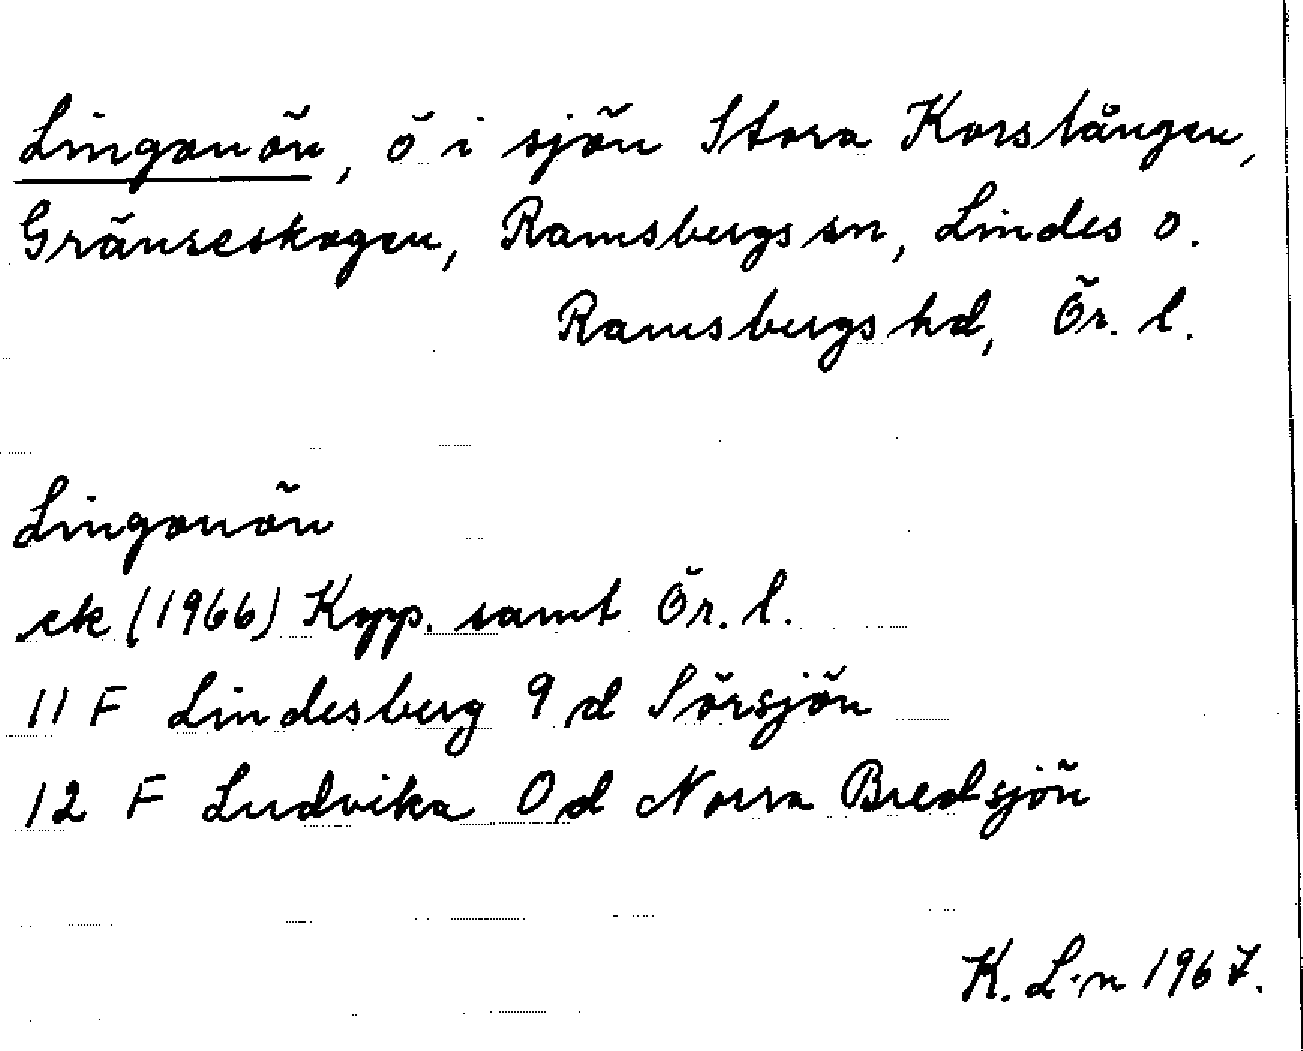 Lingonön, ö i sjön Stora Korslången,
Gränseskogen, Ramsbergs sn, Lindes o.
Ramsbergs hd, Ör. l.
Lingonön
ek (1966) Kopp. samt Ör. l.
11 F Lindesberg 9 d Sörsjön
12 F Ludvika 0 d Norra Bredsjön
K. L-n 1967.